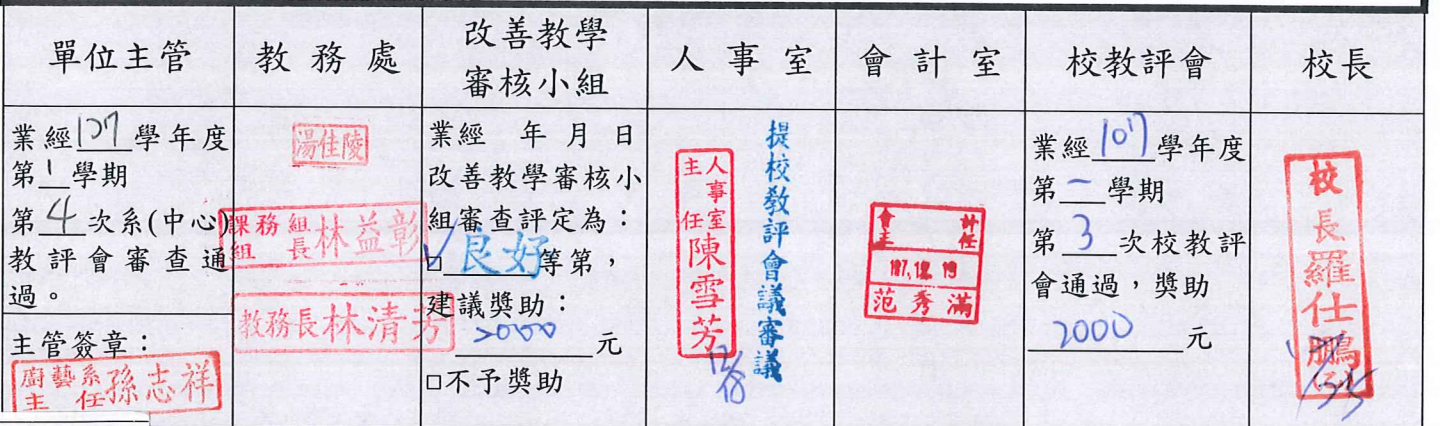 單位主管
教務處
改善教學
審核小組
人事室
會計室
校教評會
校長
業經107學年度
第1學期
第4次系(中心)
教評會審查通
過。
主管簽章:
廚藝系
主任
孫志祥
湯佳陵
課務組
組長
林益彰
教務長林清芳
業經 年 月 日
改善教學審核小
組審查評定為:
☑良好等第,
建議獎助:
2000元
□不予獎助
人事室
主任
陳雪芳
12/18
提校教評會議審議
會計
主任
107.12.19
范秀滿
業經107學年度
第一學期
第3次校教評
會通過,獎助
2000元
校長羅仕鵬